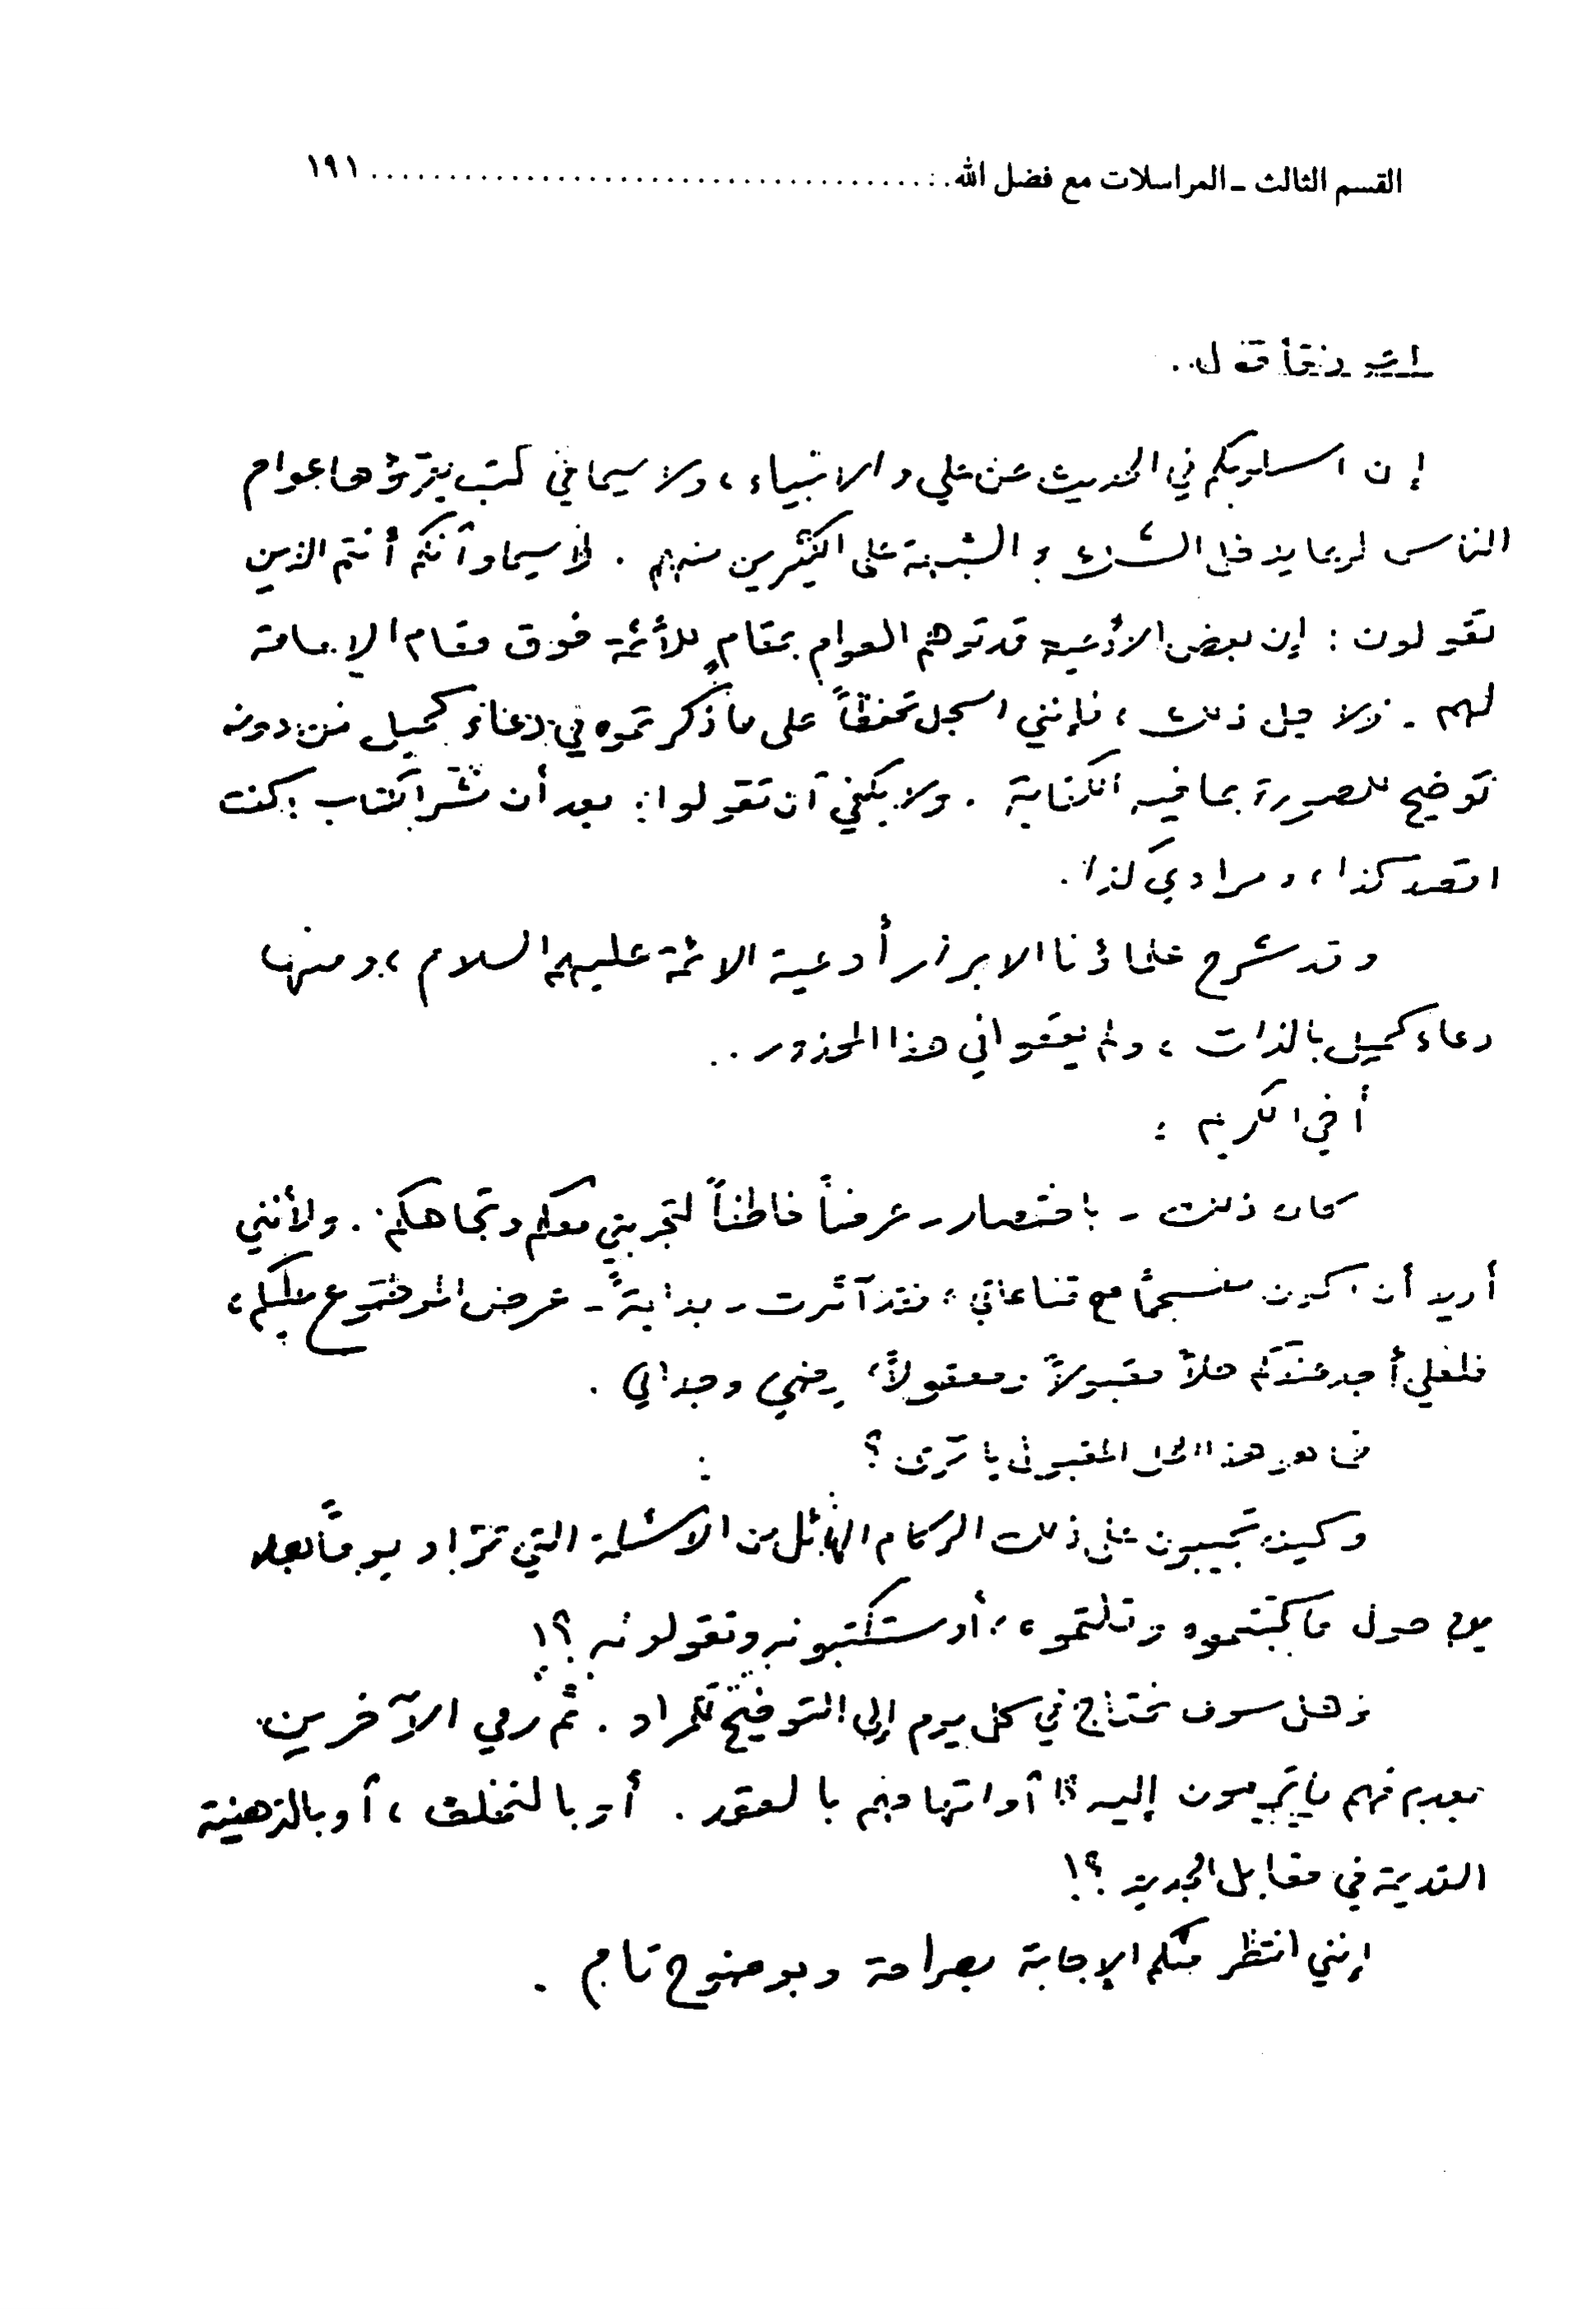 القسم الثالث ـ المراسلات مع فضل الله ........................................ ١٩١
فأقول..
إن اسلوبكم في الحديث عن علي والانبياء، ولا سيما في كتب يقرؤها عوام
الناس لربما يدخل الشك والشبهة على الكثيرين منهم . لا سيما وأنكم أنتم الذين
تقولون : إن بعض الأدعية قد توهم العوام بمقامٍ للأئمة فوق مقام الإمامة
لهم . ولاجل ذلك، فإنني اسجل تحفظاً على ما ذكرتموه في دعاء كميل من دون
توضيح للصورة بما فيه الكفاية . ولا يكفي أن تقولوا: بعد أن نشر الكتاب : كنت
اقصد كذا، ومرادي كذا.
وقد شرح علماؤنا الابرار أدعية الائمة عليهم السلام، ومنها
دعاء كميل بالذات، ولم يقعوا في هذا المحذور..
أخي الكريم :
كان ذلك - باختصار - عرضاً خاطفاً لتجربتي معكم وتجاهكم. ولأنني
أريد أن أكون منسجماً مع قناعاتي، فقد آثرت - بدايةً - عرض الموضوع عليكم،
فلعلي أجد عندكم حلاً مقبولاً ومعقولاً، يرضي وجداني .
فما هو هذا الحل المقبول يا ترى ؟
وكيف تجيبون على ذلك الركام الهائل من الأسئلة التي تزداد يوماً بعد
يوم حول ما كتبتموه وقلتموه، أو ستكتبونه وتقولونه ؟!
وهل سوف نحتاج في كل يوم إلى التوضيح للمراد . ثم رمي الآخرين
بعدم فهم ما يرمون إليه أو اتهامهم بالعقد . أو بالتخلف، أو بالذهنية
القديمة في مقابل الجديد ؟!
إنني انتظر منكم الإجابة بصراحة وبوضوح تام .